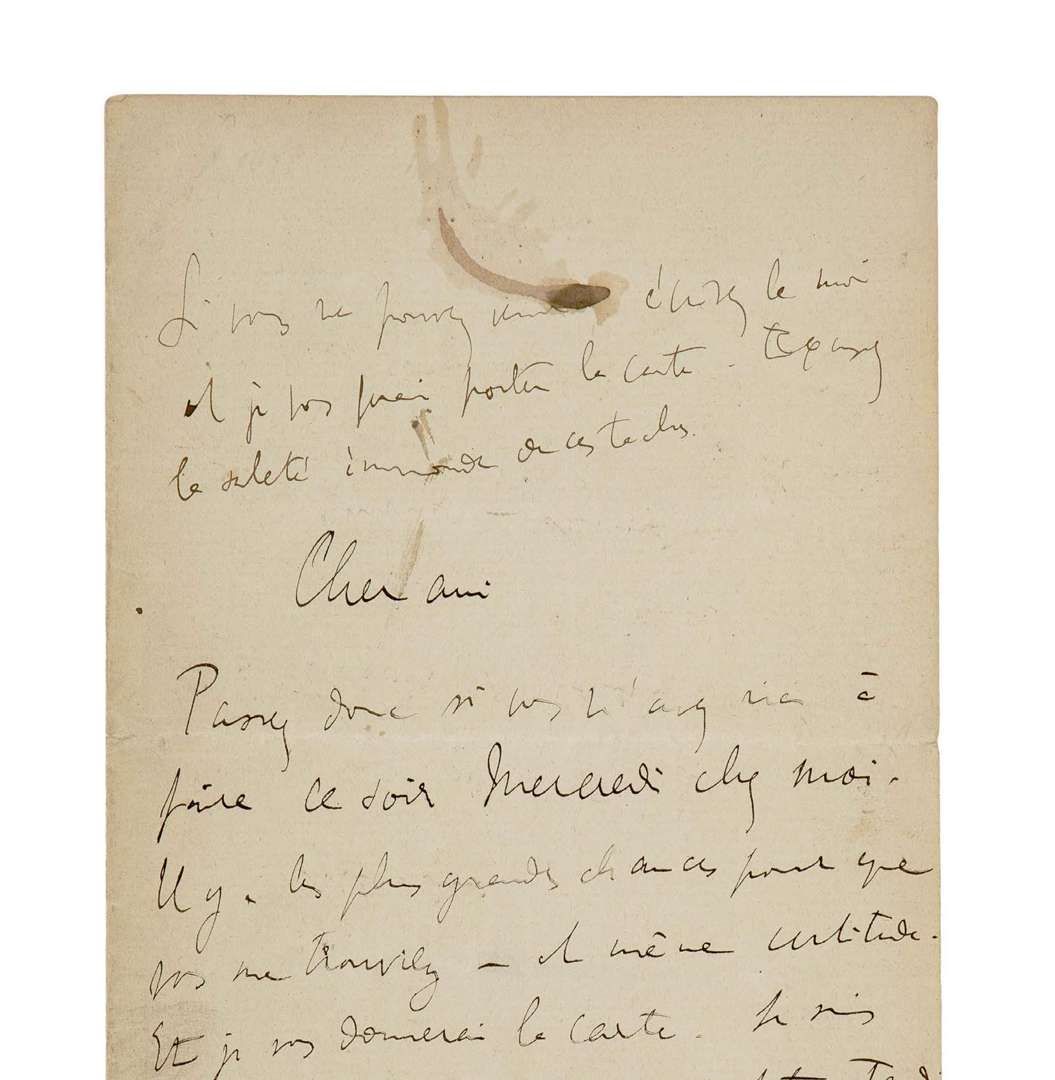 Si vous ne pouvez venir écrivez le moi
et je vos ferai porter la carte. Excusez
la saleté immonde de ces taches.
Cher ami
Passez donc si vous n'avez rien à
faire ce soir Mercredi chez moi.
Il y a les plus grandes chances pour que
vos me trouviez – et même certitude.
Et je vos donnerai la carte. Je suis